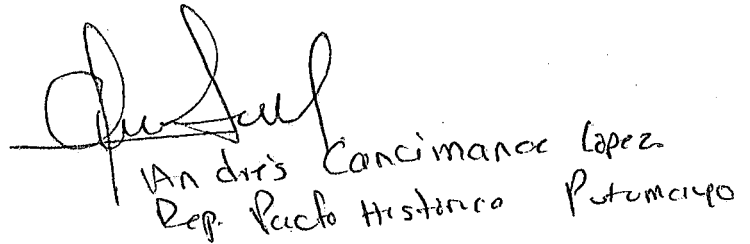 Andrés Cancimance Lopez
Rep. Pacto Histórico Putumayo